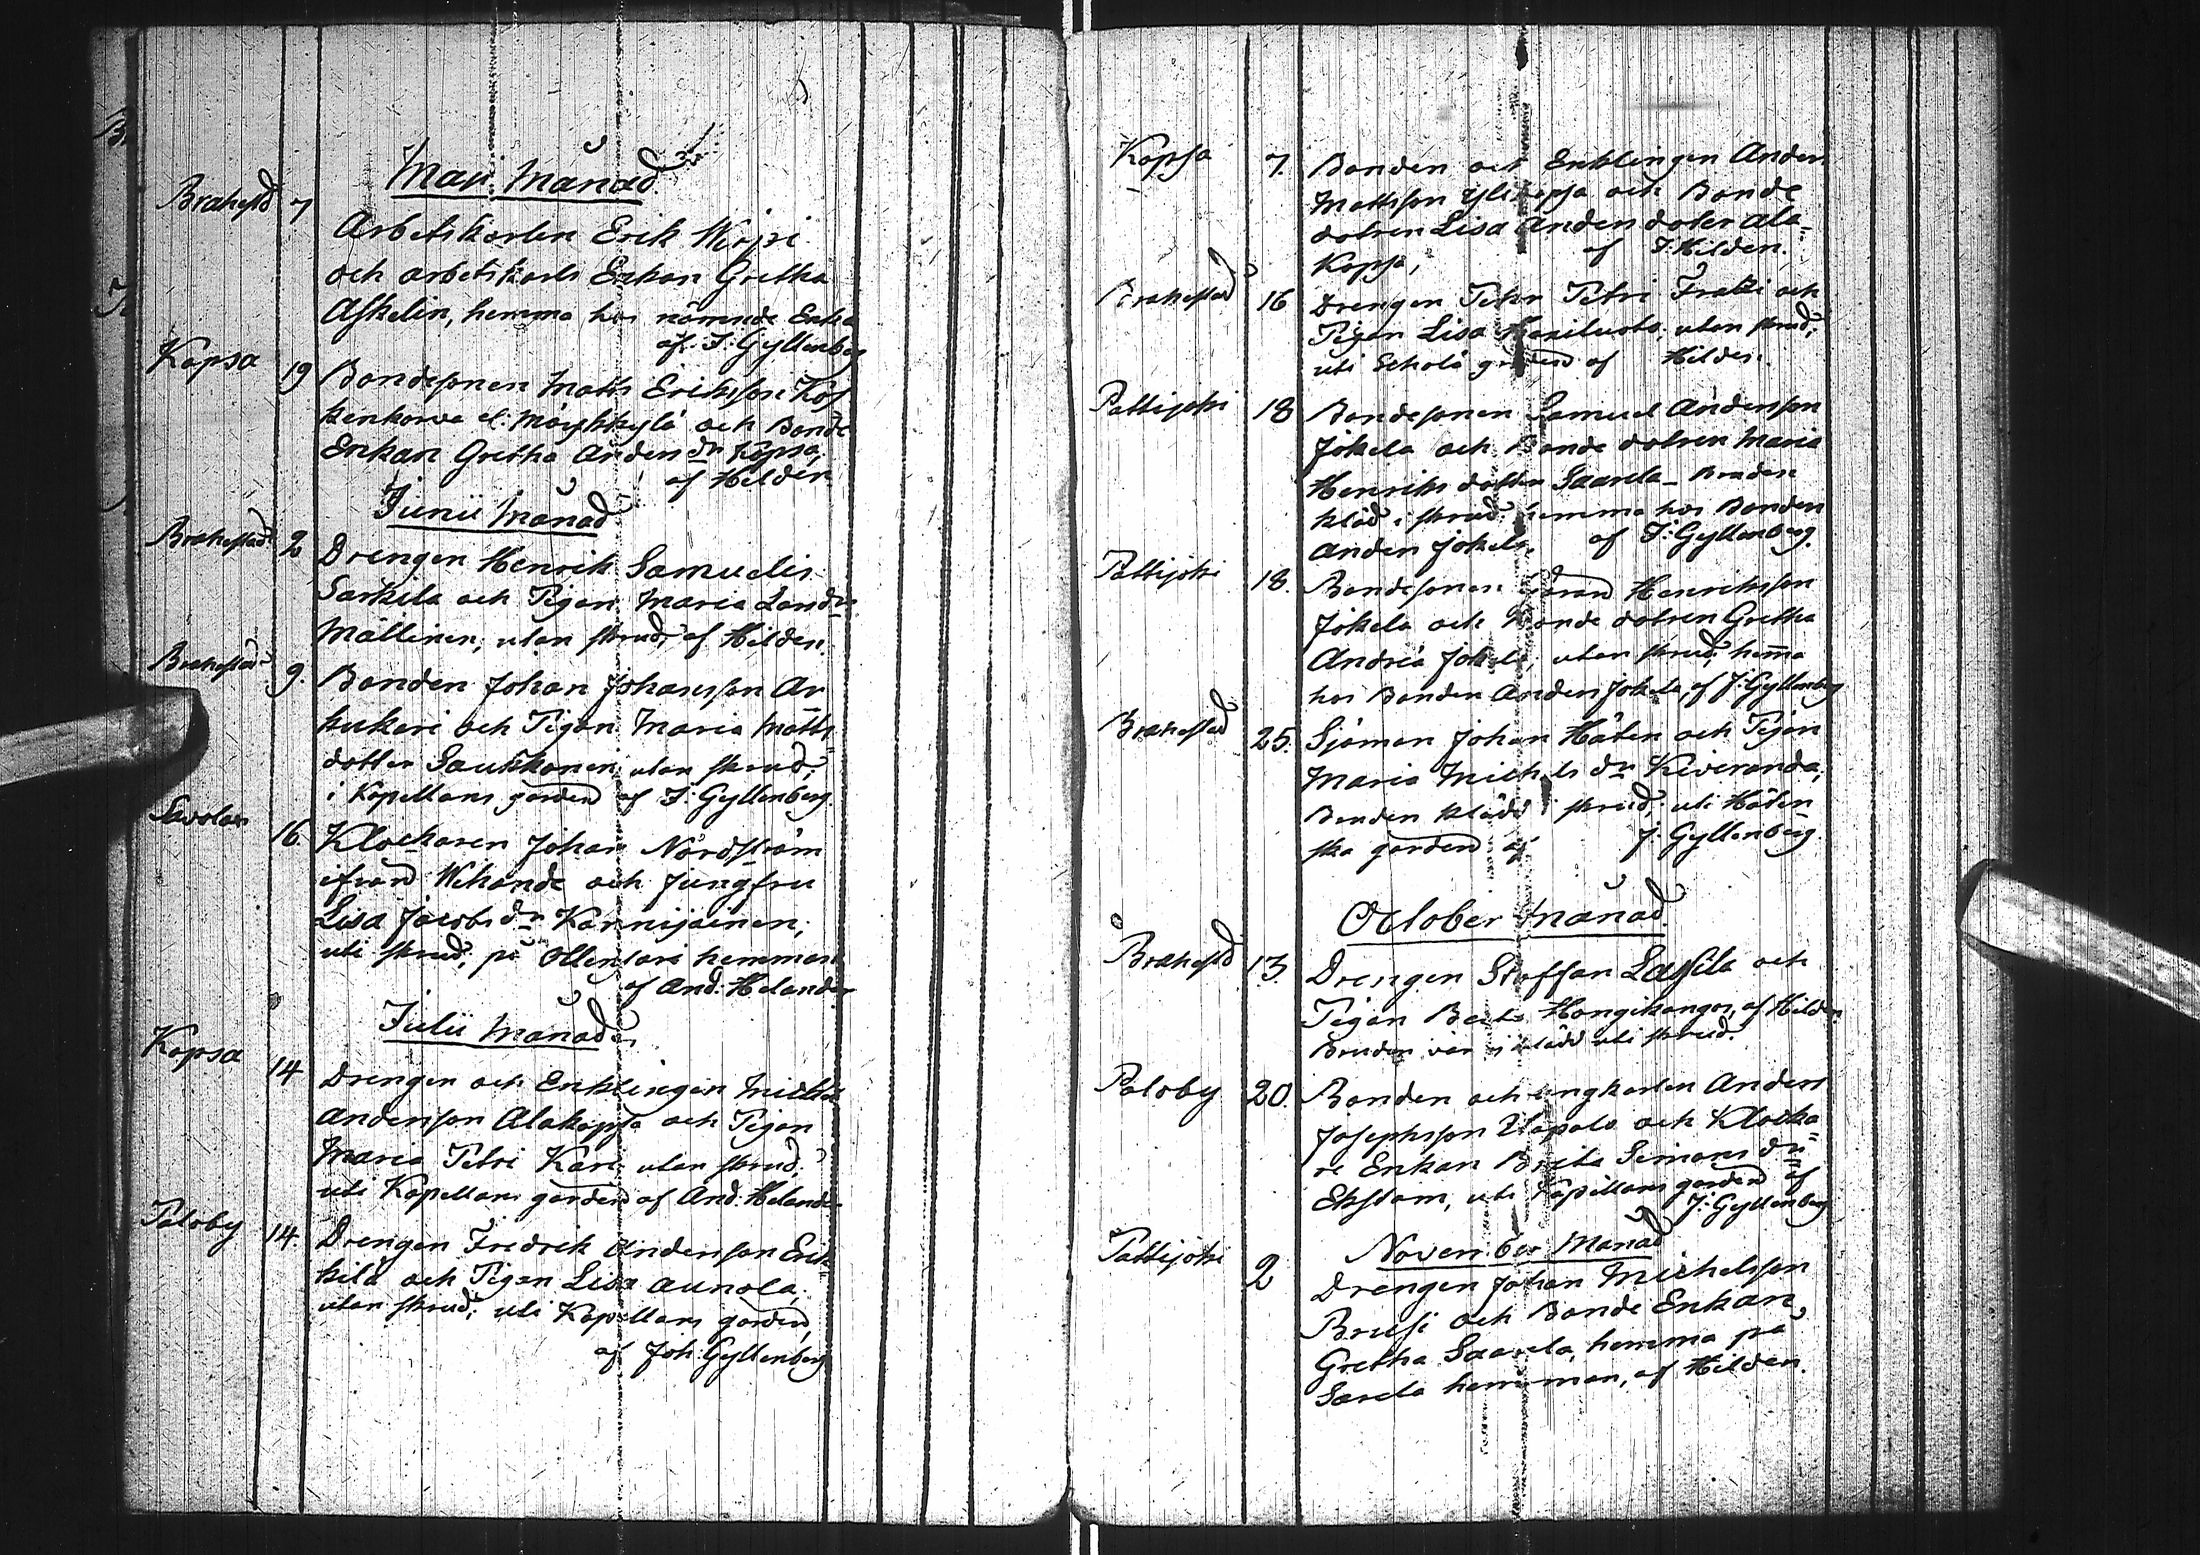 Maji Månad
Brahestd 7
Arbetskarlen Erik Wirpi
och arbetskarls Enkan Gretha
Askelin, hemma hos nämnde Enka
af J: Gyllenberg
Kopsa 19 Bondesonen Matts Eriksson Kos
kenkorva el. Mäyhkylä och Bonde
Enkan Gretha Anders dr Kopsa,
af Hilden
Junii Månad
Brahestad 2 Drengen Henrik Samuelis
Sarkela och Pigan Maria
Mällinen, utan skrud, af Hilden.
Brahestad 9. Bonden Johan Johansson Ar
kukari och Pigan Maria Matts
dotter Saukkonen, utan skrud,
i Kapellans gården af J. Gyllenberg.
Savolax
16. Klockaren Johan Nordström
ifrånd Wihande och Jungfru
Lisa Jacobs dr
uti skrud, på hemman
af And. Helander
Julii Månad
Kopsa
14 Drengen och Enklingen Michel
Andersson Alakopsa och Pigan
Maria Petri Kare utan skrud,
uti Kapellans gården af And. Helander
Paloby 14. Drengen Fredrik Andersson Erik
kilä och Pigan Lisa Aunola,
utan skrud, uti Kapellans gården,
af Joh: Gyllenberg
Kopsa 7. Bonden och Enklingen Anders
Mattsson Ylikopsa och Bonde
dotren Lisa Anders doter Ala-
Kopsa, af J. Hilden.
Brahestad 16 Drengen Petri och
Pigan Lisa utan skrud,
uti Schola gården af Hilden.
Pattijoki 18 Bondesonen Samuel Andersson
Jokela och Bonde dotren Maria
Henriks dotter Saarela - Bruden
kläd i skrud hemma hos Bonden
Anders Jokela, af J: Gyllenberg.
Pattijoki 18. Bondesonen Görand Henriksson
Jokela och Bonde dotren Gretha
Andrea Jokela, utan skrud, hema
hos Bonden Anders Jokela, af J: Gyllenberg
Brahestad 25. Sjöman Johan Håten och Pigan
Maria Michels dr Kiviranda,
Bruden klädd i skrud, uti Håten
ska gården af J. Gyllenberg.
October Månad
Brahestd 13. Drengen Staffan Lassila och
Pigan Beata Hongikangas, af Hilden
Bruden var ej klädd uti skrud.
Paloby 20. Bonden och ungkarlen Anders
Josephsson Ulapalo och Klocka=
re Enkan Brita Simons dr
Ekstam, uti Kapellans gården af
J: Gyllenberg
November Månad
Pattijoki 2 Drengen Johan Michelsson
Brusi och Bonde Enkan
Gretha Saarela, hemma på
Sarela hemman, af Hilden.